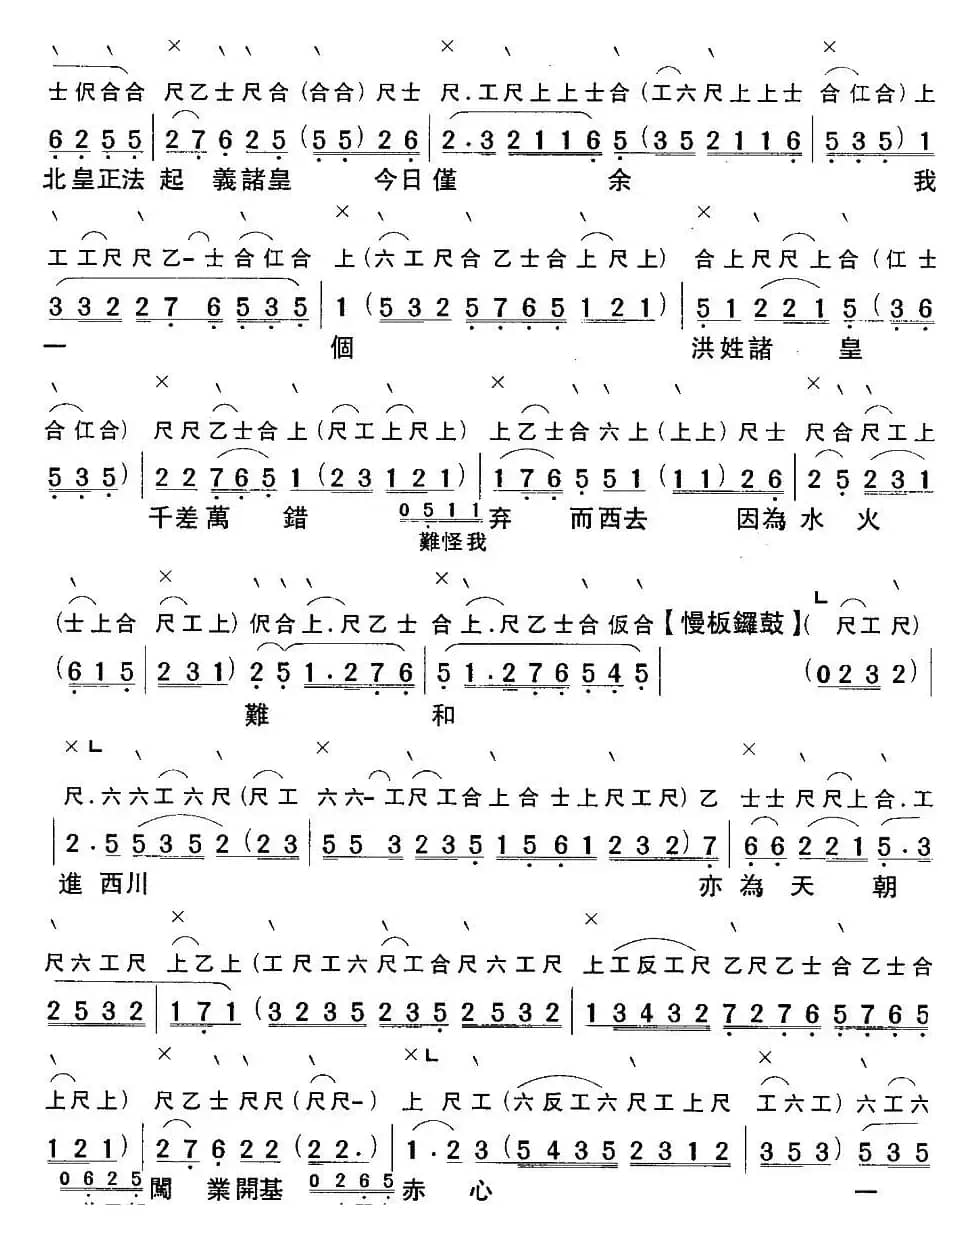 士伬合合 尺乙士尺合(合合)尺士 尺.工尺上上士合(工六尺上上士 合仜合)上
6 2 5 5 | 2 7 6 2 5 (5 5) 2 6 | 2.3 2 1 1 6 5 (3 5 2 1 1 6 | 5 3 5) 1
北皇正法起 義諸皇 今日僅 余 我
工工尺尺乙-士合仜合 上(六工尺合乙士合上尺上) 合上尺尺上合(仜士
3 3 2 2 7 6 5 3 5 | 1 (5 3 2 5 7 6 5 1 2 1) | 5 1 2 2 1 5 (3 6
一 個 洪姓諸 皇
合仜合) 尺尺乙士合上(尺工上尺上) 上乙士合六上(上上)尺士 尺合尺工上
5 3 5) | 2 2 7 6 5 1 (2 3 1 2 1) | 1 7 6 5 5 1 (1 1) 2 6 | 2 5 2 3 1
千差萬 錯 0 5 1 1 弃 而西去 因為水 火
難怪我
(士上合 尺工上)伬合上.尺乙士 合上.尺乙士合仮合【慢板鑼鼓】( 尺工尺)
(6 1 5 | 2 3 1) 2 5 1.2 7 6 | 5 1.2 7 6 5 4 5 | (0 2 3 2) |
難 和
尺.六六工六尺(尺工 六六-工尺工合上合士上尺工尺)乙 士士尺尺上合.工
| 2.5 5 3 5 2 (2 3 | 5 5 3 2 3 5 1 5 6 1 2 3 2) 7 | 6 6 2 2 1 5.3
進 西川 亦為天 朝
尺六工尺 上乙上(工尺工六尺工合尺六工尺 上工反工尺乙尺乙士合乙士合
2 5 3 2 | 1 7 1 (3 2 3 5 2 3 5 2 5 3 2 | 1 3 4 3 2 7 2 7 6 5 7 6 5
上尺上) 尺乙士尺尺(尺尺-) 上尺工(六反工六尺工上尺 工六工)六工六
1 2 1) | 2 7 6 2 2 (2 2.) | 1.2 3 (5 4 3 5 2 3 1 2 | 3 5 3) 5 3 5
0 6 2 5 闖 業開基 0 2 6 5 赤 心 一